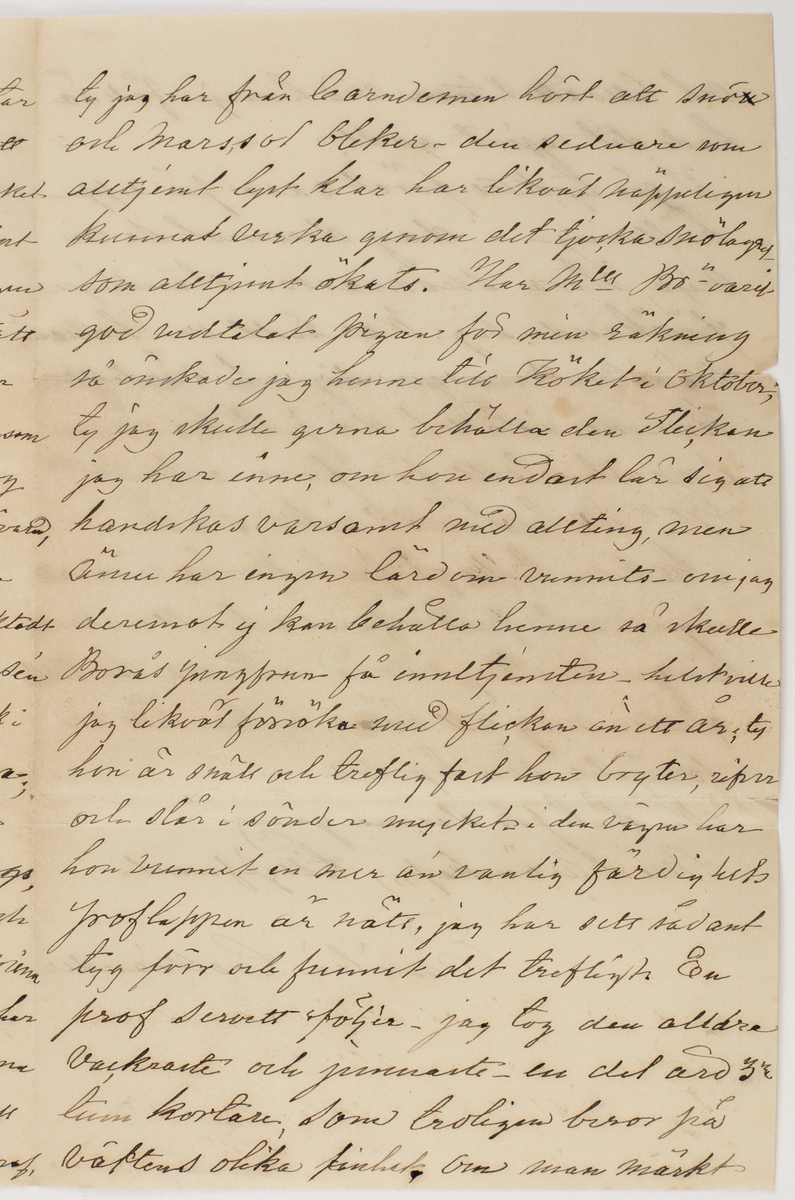 ty jag har från barndomen hört att snön
och Marssol bleker – den sednare som
alltjemt lyst klar har likväl näppeligen
kunnat verka genom det tjocka snölagret
som alltjemt ökats. Har Mlle Bo- varit
god vidtalat pigan för min räkning
så önskade jag henne till Köket i Oktober;
ty jag skulle gerna behålla den Flickan
jag har inne, om hon endast lär sig att
handskas varsamt med allting, men
ännu har ingen lärdom vunnits – om jag
deremot ej kan behålla henne så skulle
Borås jungfrun få innetjensten – helst ville
jag likväl försöka med flickan än ett år; ty
hon är snäll och treflig fast hon bryter, rifver
och slår i sönder mycket – i den vägen har
hon vunnit en mer än vanlig färdighet.
Proflappen är nätt, jag har sett sådant
tyg förr och funnit det trefligt. En
prof servett följer – jag tog den alldra
vackraste och jemnaste – en del äro 3ne
tum kortare, som troligen beror på
väftens olika finhet, om man märkt